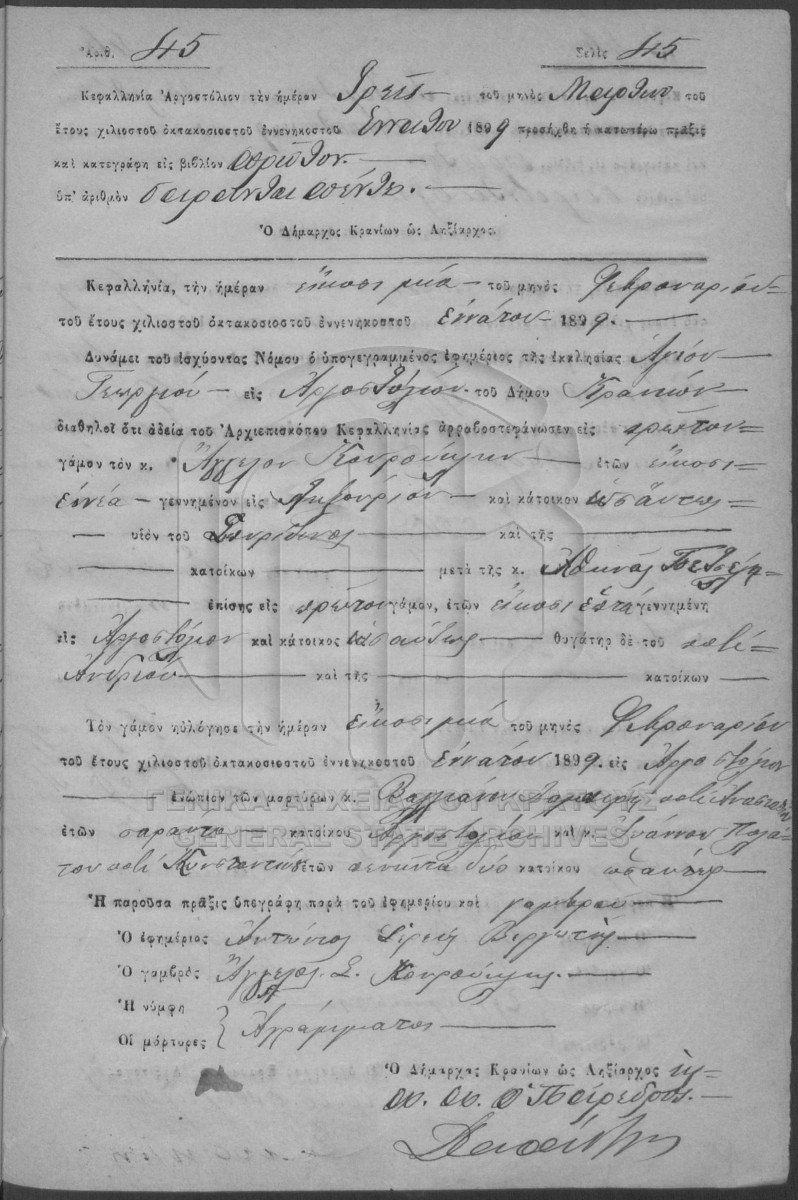 Ἀριθ. 45 Σελὶς 45
Κεφαλληνία Ἀργοστόλιον τὴν ἡμέραν Τρεῖς τοῦ μηνὸς Μαρτίου τοῦ
ἔτους χιλιοστοῦ ὀκτακοσιοστοῦ ἐννενηκοστοῦ ἐννάτου 1899 προσήχθη ἡ κατωτέρω πρᾶξις
καὶ κατεγράφη εἰς βιβλίον πρῶτον.
ὑπ' ἀριθμὸν σαράντα πέντε.
Ὁ Δήμαρχος Κρανίων ὡς Ληξίαρχος.
Κεφαλληνία, τὴν ἡμέραν εἴκοσι μιά τοῦ μηνὸς Φεβρουαρίου
τοῦ ἔτους χιλιοστοῦ ὀκτακοσιοστοῦ ἐννενηκοστοῦ ἐννάτου 1899.
Δυνάμει τοῦ ἰσχύοντος Νόμου ὁ ὑπογεγραμμένος ἐφημέριος τῆς ἐκκλησίας Ἁγίου
Γεωργίου εἰς Ἀργοστόλιον τοῦ Δήμου Κρανίων
διαθηλοῖ ὅτι ἀδείᾳ τοῦ Ἀρχιεπισκόπου Κεφαλληνίας ἀρραβοστεφάνωσεν εἰς πρῶτον
γάμον τὸν κ. Ἄγγελον Κουρούκλην ἐτῶν εἴκοσι
ἐννέα γεννημένον εἰς Ληξούριον καὶ κάτοικον ὡσαύτως
υἱὸν τοῦ Σπυρίδωνος καὶ τῆς
κατοίκων μετὰ τῆς κ. Ἀθηνᾶς
ἐπίσης εἰς πρῶτον γάμον, ἐτῶν εἴκοσι ἑπτά γεννημένη
εἰς Ἀργοστόλιον καὶ κάτοικος ὡσαύτως θυγάτηρ δὲ τοῦ ποτὲ
Ἀνδρέου καὶ τῆς κατοίκων
Τὸν γάμον ηὐλόγησε τὴν ἡμέραν εἴκοσι μιά τοῦ μηνὸς Φεβρουαρίου
τοῦ ἔτους χιλιοστοῦ ὀκτακοσιοστοῦ ἐννενηκοστοῦ ἐννάτου 1899. εἰς Ἀργοστόλιον
Ἐνώπιον τῶν μαρτύρων κ. ποτὲ Ἀναστασίου
ΓΕΝΙΚΑ ΑΡΧΕΙΑ ΤΟΥ ΚΡΑΤΟΥΣ
ἐτῶν σαράντα κατοίκου Ἀργοστολίου καὶ κ. Ἰωάννου
GENERAL STATE ARCHIVES
του ποτὲ Κωνσταντίνου ἐτῶν πενῆντα δύο κατοίκου ὡσαύτως
Ἡ παροῦσα πρᾶξις ὑπεγράφη παρὰ τοῦ ἐφημερίου καὶ γαμβροῦ
Ὁ ἐφημέριος Ἀντώνιος Ἱερεὺς Βεργωτής
Ὁ γαμβρὸς Ἄγγελος Σ. Κουρούκλης.
Ἡ νύμφη
Οἱ μάρτυρες } Ἀγράμματοι
Ὁ Δήμαρχος Κρανίων ὡς Ληξίαρχος
ὁ Πάρεδρος.